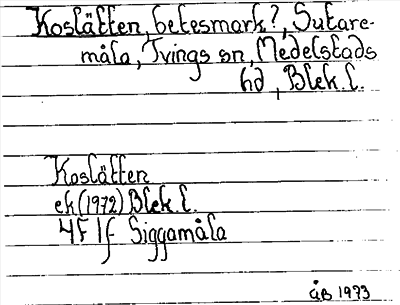 Koslätten, betesmark?, Sutare-
måla, Tvings sn, Medelstads
hd, Blek.l.
Koslätten
ek (1972) Blek.l.
4F 1f Siggamåla
ÅB 1973